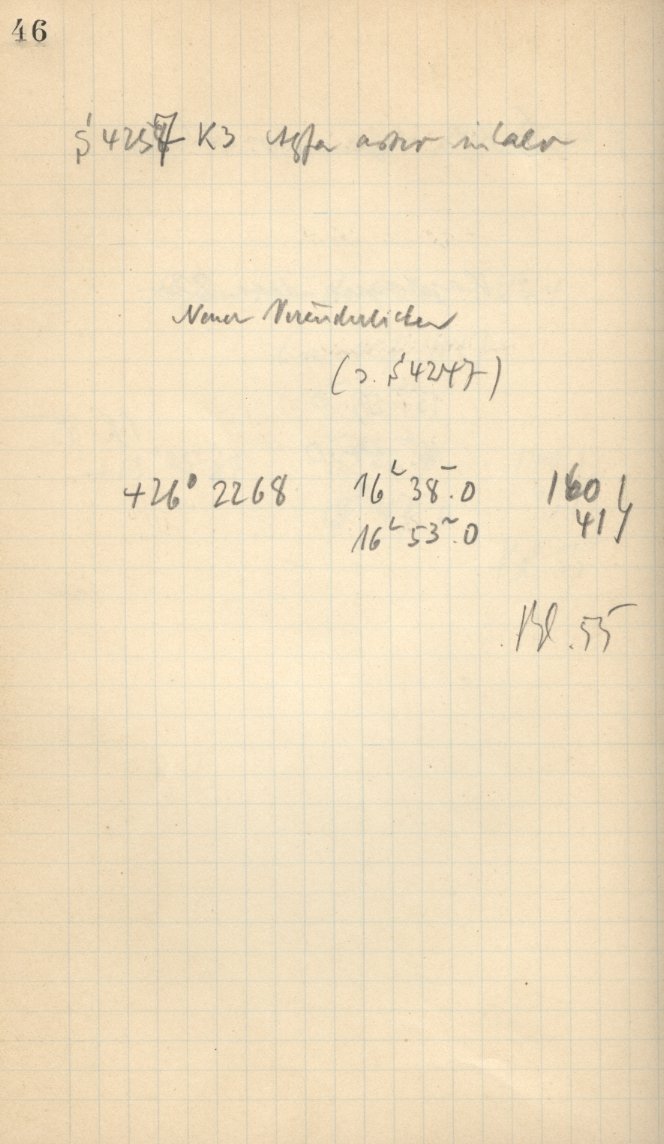 46
S 4257 K3 Agfa astro
Neuer Veränderlicher
(s. S 4247)
+26° 2268 16h 38m.0 160
16h 53m.0 41
Bl. 55